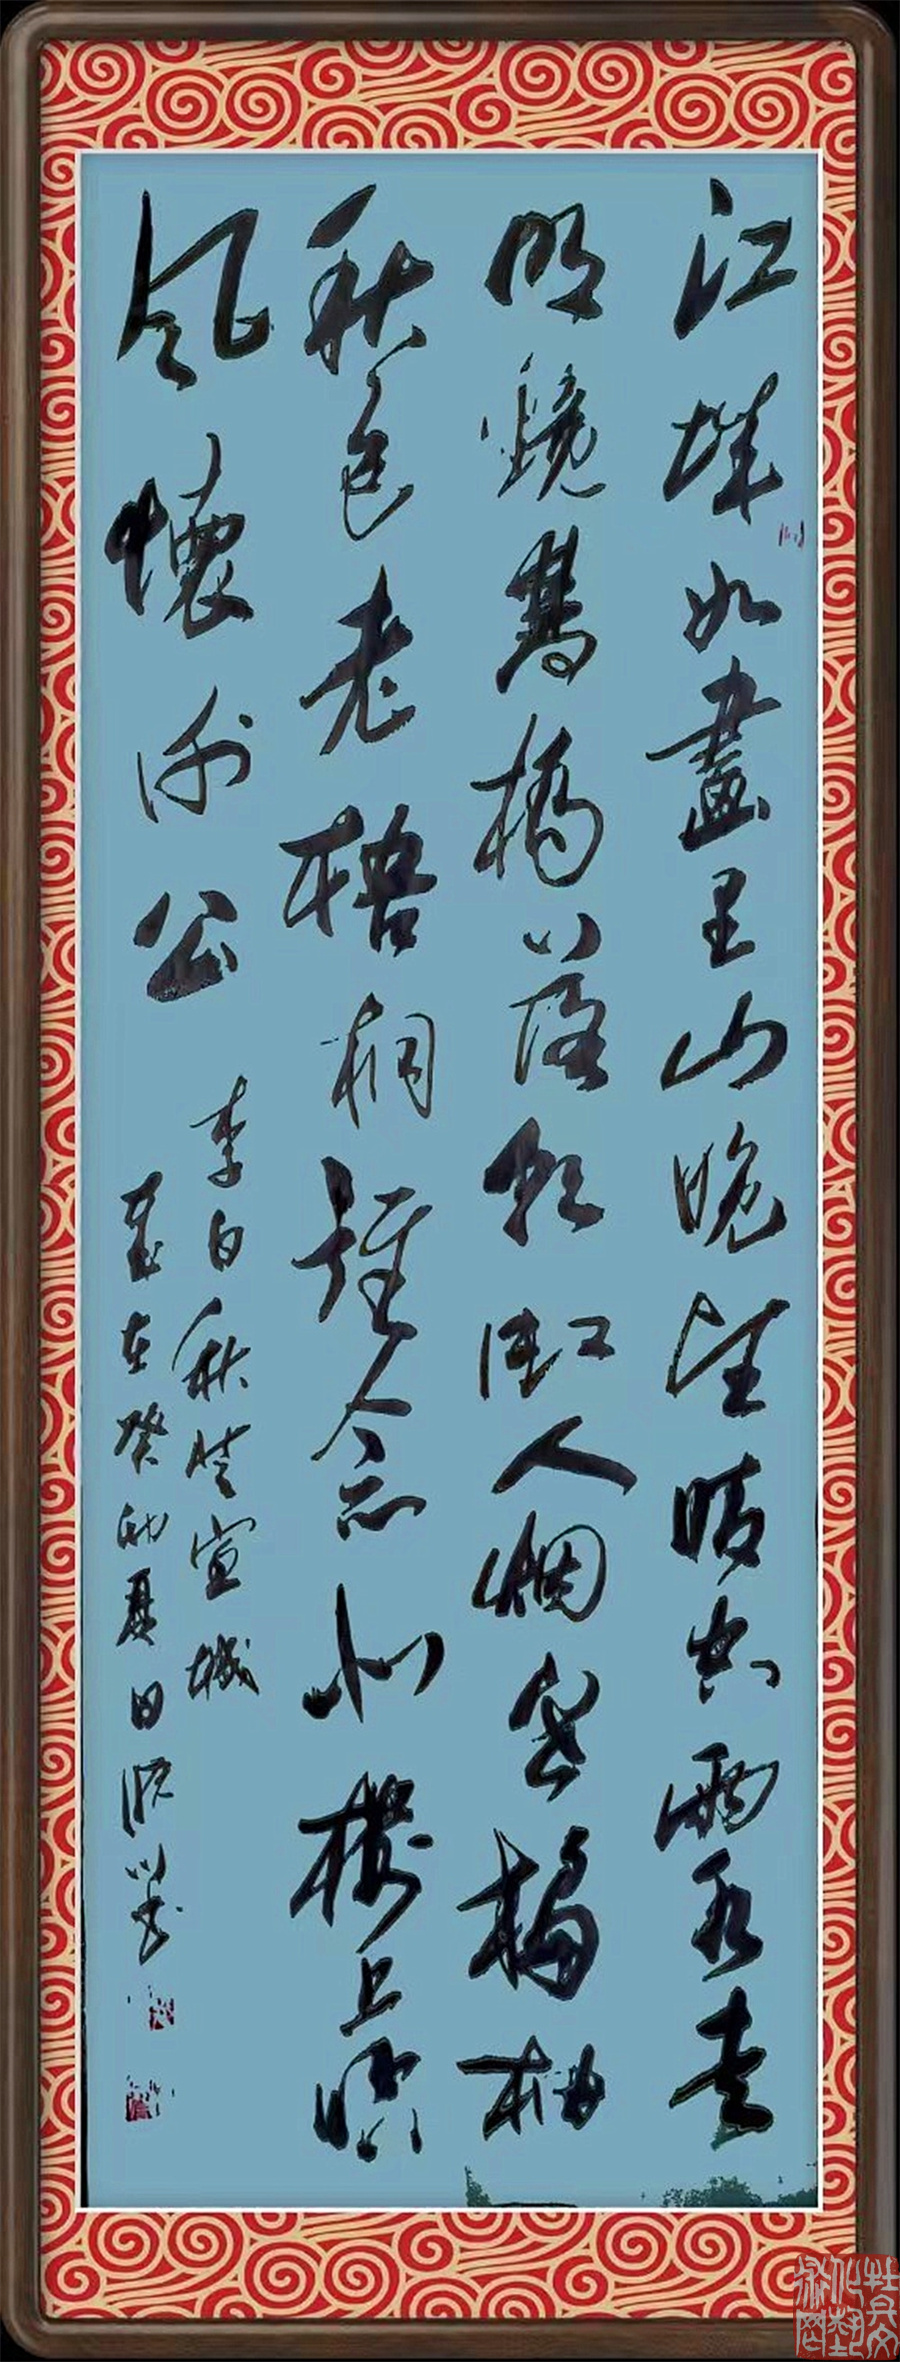 江城如畫里山晚望晴空兩水夾
明鏡雙橋落彩虹人烟寒橘柚
秋色老梧桐誰念北樓上臨
風懷謝公
李白秋登宣城
歲在癸卯夏日